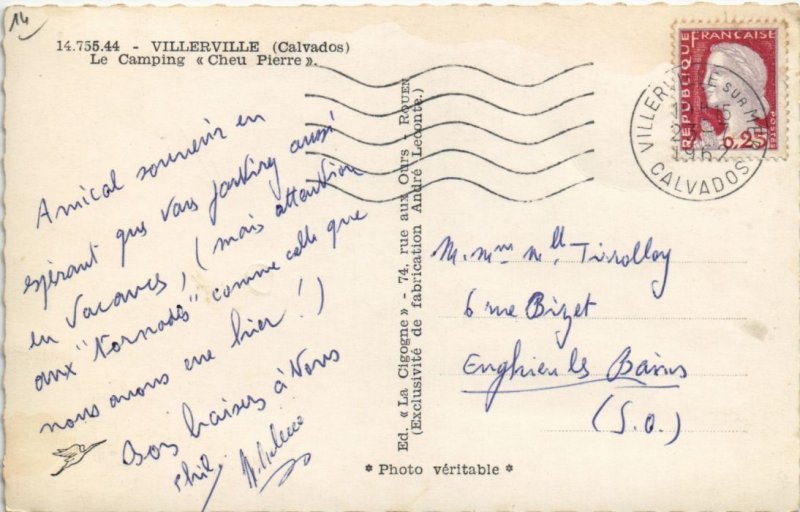 14
14.755.44 - VILLERVILLE (Calvados)
Le Camping « Cheu Pierre ».
Amical souvenir en
espérant que vous partirez aussi
en vacances, (mais attention
aux "Tornades" comme celle que
nous avons eue hier!)
Bons baisers à Vous
Phil.
Ed. « La Cigogne » - 74, rue aux Ours - ROUEN
(Exclusivité de fabrication André Leconte.)
* Photo véritable *
REPUBLIQUE FRANÇAISE
POSTES
0,25
VILLERVILLE SUR MER
1962
CALVADOS
M. Mme Mlle Tirolloy
6 rue Bizet
Enghien les Bains
(S.O.)